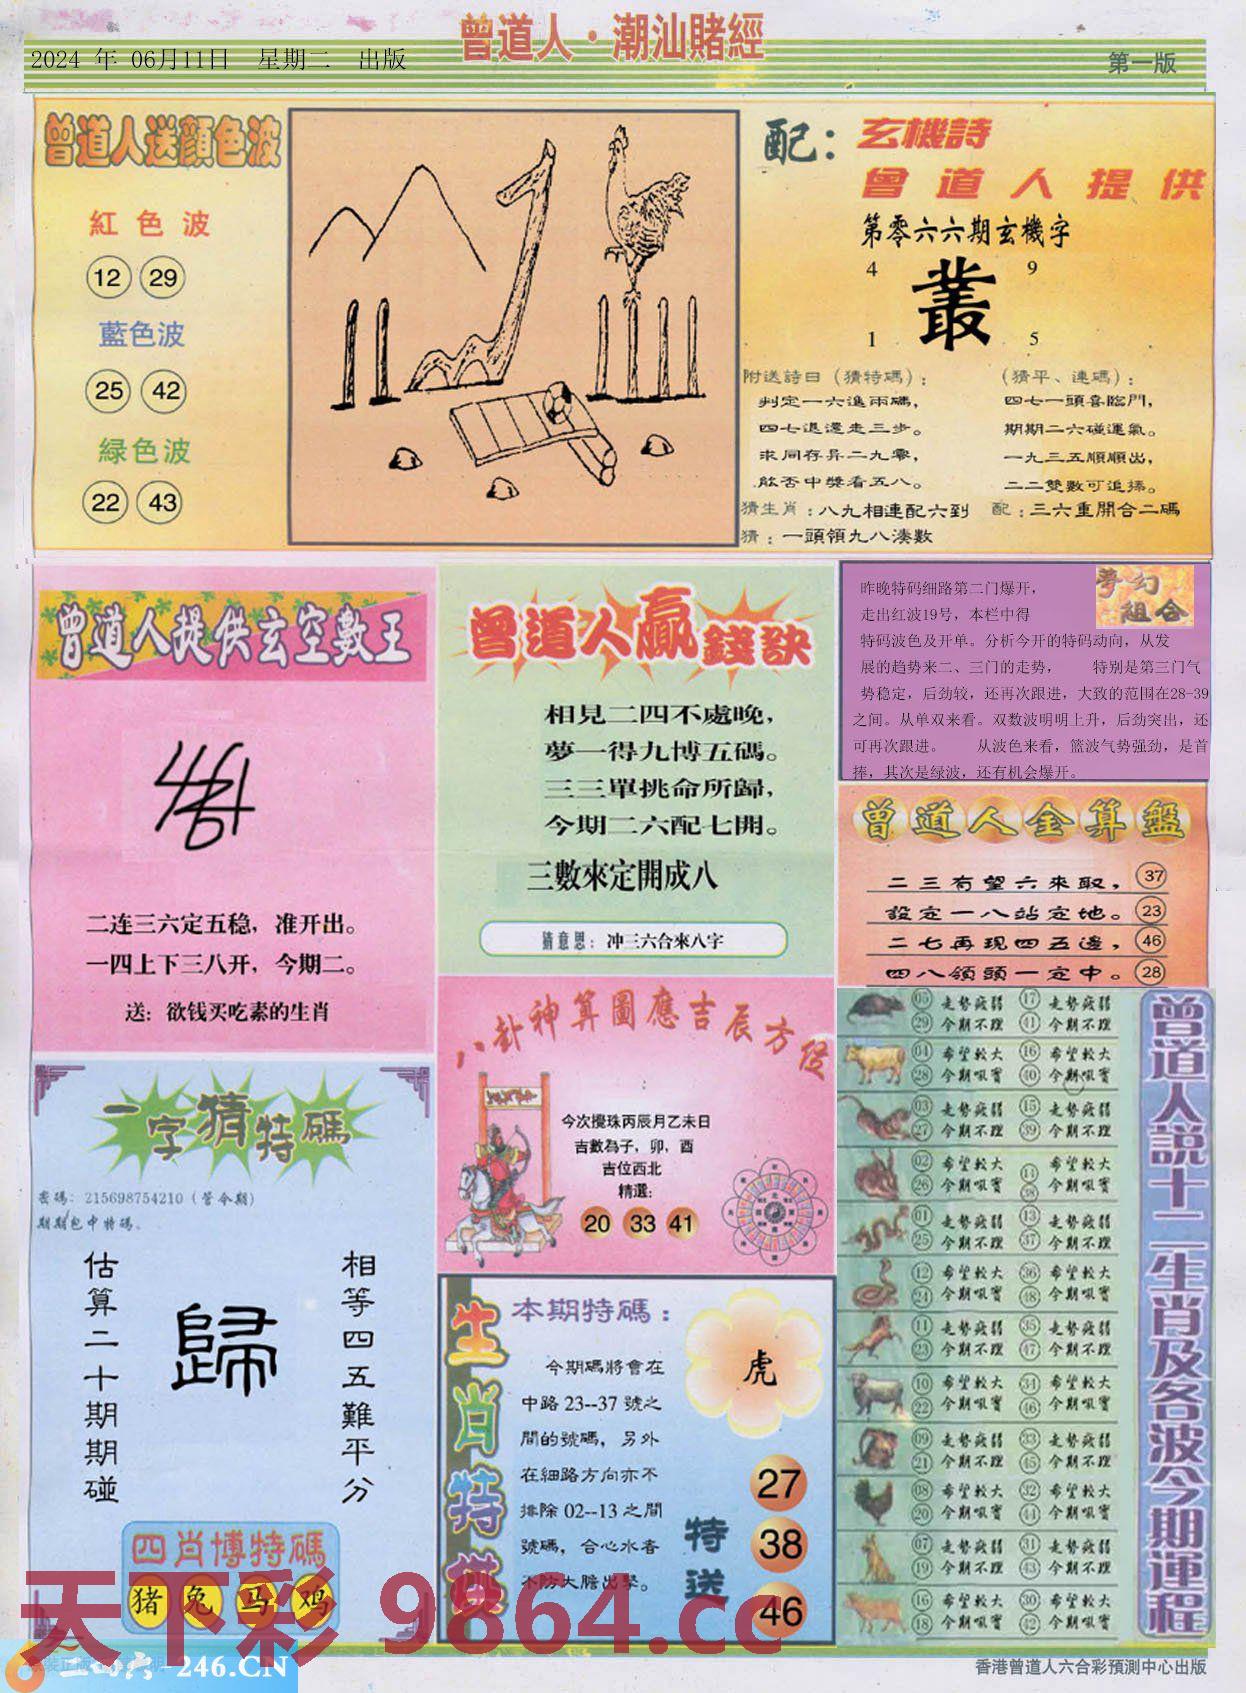 曾道人·潮汕賭經
2024 年 06月11日 星期二 出版
第一版
曾道人送顔色波
紅色波
12 29
藍色波
25 42
緑色波
22 43
配：玄機詩
曾道人提供
第零六六期玄機字
4 9
叢
1 5
附送詩曰（猜特碼）：
判定一六進兩碼，
四七退還走三步。
求同存异二九零，
能否中獎看五八。
猜生肖：八九相連配六到
猜：一頭領九八湊數
（猜平、連碼）：
四七一頭喜臨門，
期期二六碰運氣。
一九三五順順出，
二二雙數可追擇。
配：三六重開合二碼
曾道人提供玄空數王
二连三六定五稳，准开出。
一四上下三八开，今期二。
送：欲钱买吃素的生肖
曾道人贏錢訣
相見二四不處晚，
夢一得九博五碼。
三三單挑命所歸，
今期二六配七開。
三數來定開成八
猜意思：冲三六合來八字
夢幻組合
昨晚特码细路第二门爆开，
走出红波19号，本栏中得
特码波色及开单。分析今开的特码动向，从发
展的趋势来二、三门的走势， 特别是第三门气
势稳定，后劲较，还再次跟进，大致的范围在28-39
之间。从单双来看。双数波明明上升，后劲突出，还
可再次跟进。 从波色来看，篮波气势强劲，是首
捧，其次是绿波，还有机会爆开。
曾道人金算盤
二三有望六來取， 37
設定一八站定地。 23
二七再現四五邊， 46
四八領頭一定中。 28
八卦神算圖應吉辰方位
今次攪珠丙辰月乙未日
吉數為子，卯，酉
吉位西北
精選：
20 33 41
一字猜特碼
密碼：215698754210（管令期）
期期包中特碼。
估算二十期期碰
歸
相等四五難平分
四肖博特碼
猪 兔 马 鸡
生肖特供
本期特碼：
今期碼將會在
中路 23--37 號之
間的號碼，另外
在細路方向亦不
排除 02--13 之間
號碼，合心水者
不防大膽出擊。
虎
特送
27
38
46
曾道人説十二生肖及各波今期運程
05 走勢疲弱 17 走勢疲弱
29 今期不理 41 今期不理
04 希望較大 16 希望較大
28 今期吼實 40 今期吼實
03 走勢疲弱 15 走勢疲弱
27 今期不理 39 今期不理
02 希望較大 14 希望較大
26 今期吼實 38 今期吼實
01 走勢疲弱 13 走勢疲弱
25 今期不理 37 今期不理
12 希望較大 36 希望較大
24 今期吼實 48 今期吼實
11 走勢疲弱 35 走勢疲弱
23 今期不理 47 今期不理
10 希望較大 34 希望較大
22 今期吼實 46 今期吼實
09 走勢疲弱 33 走勢疲弱
21 今期不理 45 今期不理
08 希望較大 32 希望較大
20 今期吼實 44 今期吼實
07 走勢疲弱 31 走勢疲弱
19 今期不理 43 今期不理
16 希望較大 30 希望較大
18 今期吼實 42 今期吼實
天下彩 9864.cc
二四六-246.CN
香港曾道人六合彩預測中心出版